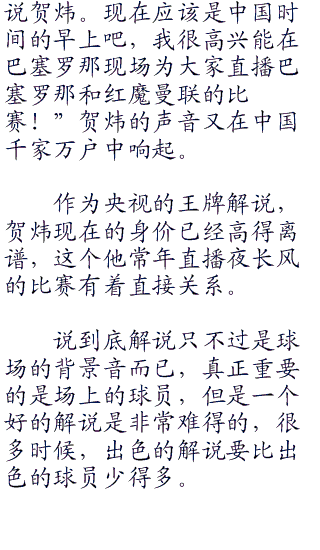 说贺炜。现在应该是中国时
间的早上吧，我很高兴能在
巴塞罗那现场为大家直播巴
塞罗那和红魔曼联的比
赛！”贺炜的声音又在中国
千家万户中响起。
作为央视的王牌解说，
贺炜现在的身价已经高得离
谱，这个他常年直播夜长风
的比赛有着直接关系。
说到底解说只不过是球
场的背景音而已，真正重要
的是场上的球员，但是一个
好的解说是非常难得的，很
多时候，出色的解说要比出
色的球员少得多。